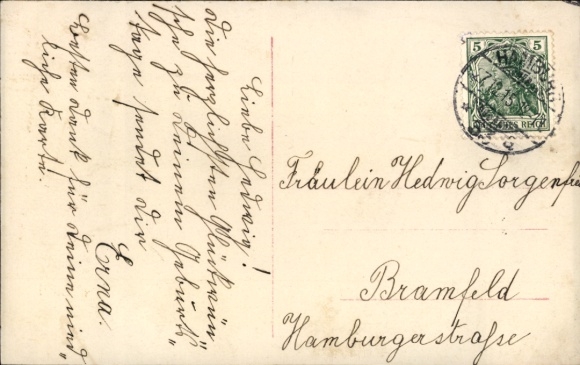 Liebe Hedwig!
Die herzlichsten Glückwün„
sche zu Deinem Geburts„
tage sendet Dir
Erna.
Besten Dank für Deine nied„
liche Karte.
5 5
DEUTSCHES REICH
HAMBURG
Fräulein Hedwig Sorgenfrei
Bramfeld
Hamburgerstraße